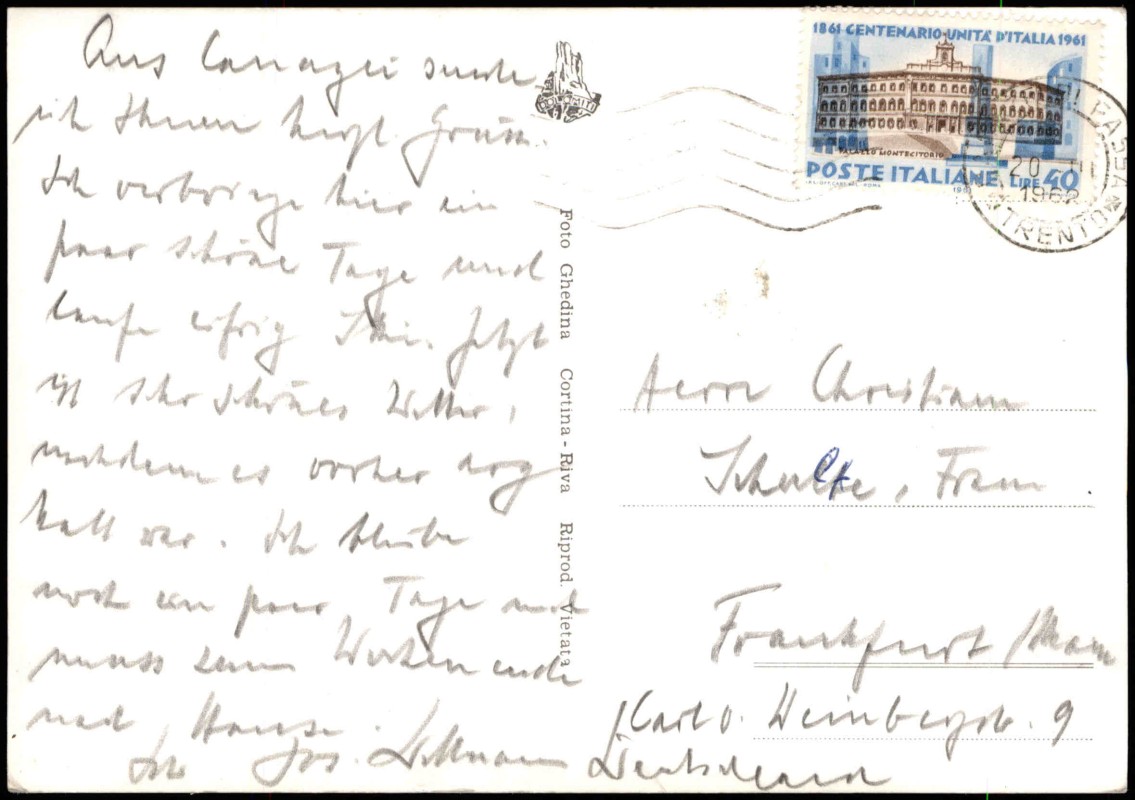 Aus Canazei sende
ich Ihnen herzl. Grüsse.
Ich verbringe hier ein
paar schöne Tage und
laufe eifrig Ski. Jetzt
ist sehr schönes Wetter,
nachdem es vorher arg
kalt war. Ich bleibe
noch ein paar Tage und
muss zum Wochenende
nach Hause.
Ihr Jos.
DOLOMITI
Foto Ghedina Cortina - Riva Riprod. Vietata
1861 CENTENARIO UNITA' D'ITALIA 1961
PALAZZO MONTECITORIO
POSTE ITALIANE LIRE 40
1961
FASSA
20
1962
(TRENTO)
Herrn Christian
Schulte, Fram
Frankfurt / Main
Carl v. Weinbergstr. 9
Deutschland